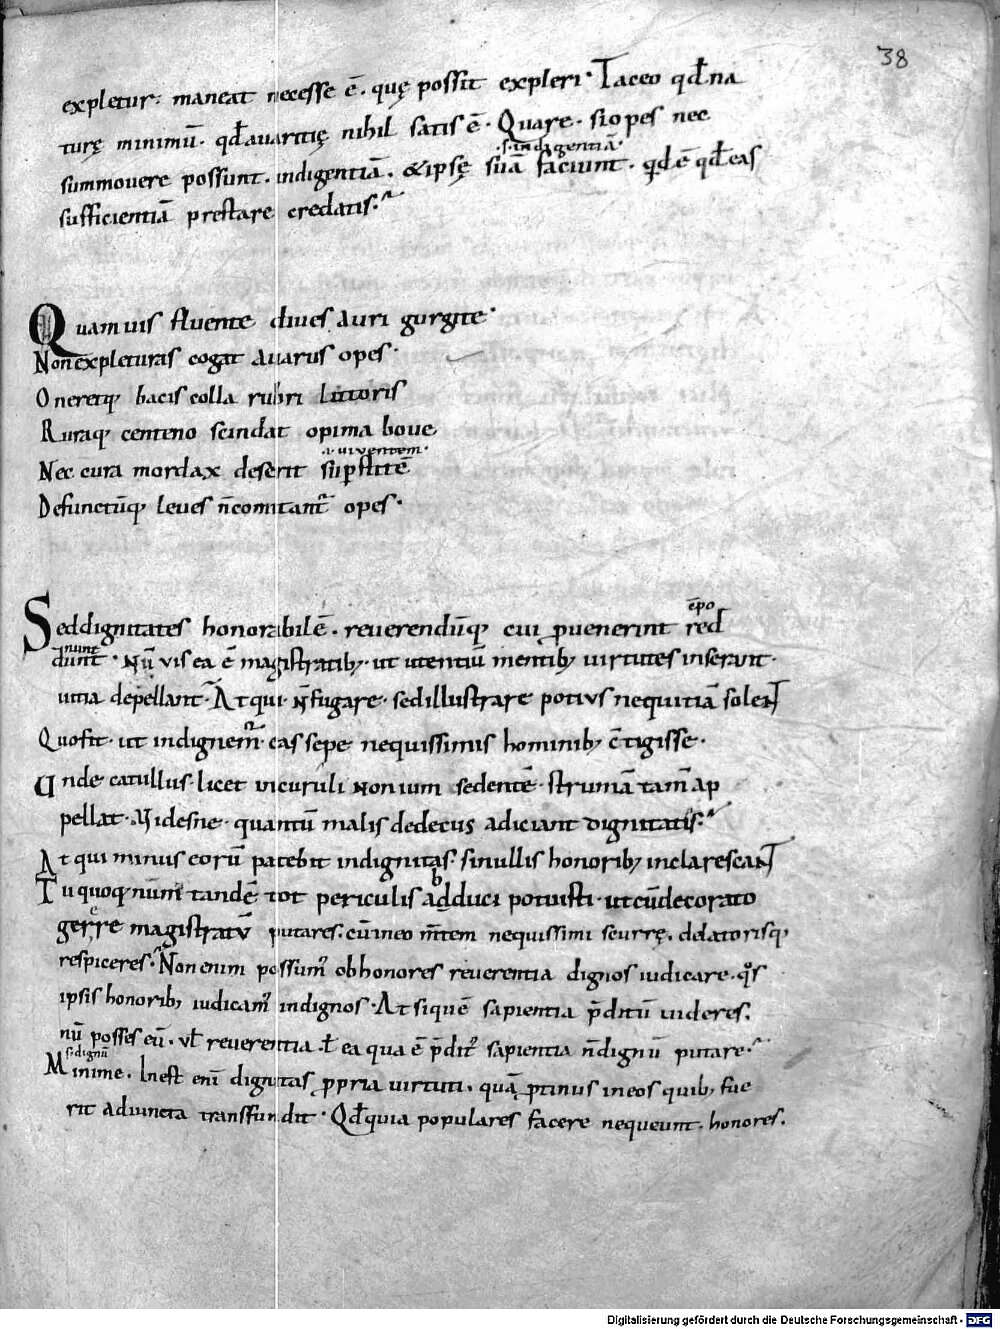 38
expletur: maneat necesse ē. quę possit expleri. Taceo qđ na
turę minimū. qđ avaritię nihil satis ē. Quare. si opes nec
.s. indigentiā.
summovere possunt. indigentiā. & ipsę suā faciunt. qđ ē qđ eas
sufficientiā prestare credatis.
Quamvis fluente dives auri gurgite.
Non expleturas cogat avarus opes.
Oneretq; bacis colla rubri littoris
Ruraq; centeno scindat opima bove
.i. viventem.
Nec cura mordax deserit supstitē
Defunctūq; leves ñ comitant̃ opes.
ēpo
Sed dignitates honorabilē. reverendūq; cui pvenerint red
nunt
dunt. Nū vis ea ē magistratib; ut utentiū mentib; virtutes inserant.
vitia depellant. Atqui. ñ fugare. sed illustrare potius nequitiā solent
Quo fit. ut indignem̃. eas sepe nequissimis hominib; c̄tigisse.
Unde catullus. licet in curuli nonium sedentē. strumā tam̄ ap
pellat. Videsne. quantū malis dedecus adiciant dignitatis.
At qui minus eorū patebit indignitas. si nullis honorib; inclarescant
Tu quoq; num tandē tot periculis adduci potuisti. ut cū decorato
gerere magistratū putares. cū in eo m̄tem nequissimi scurrę. delatorisq;
respiceres. Non enim possum̃ ob honores reverentia dignos iudicare. q̊s
ipsis honorib; iudicam̃ indignos. At si quē sapientia p̄ditū videres.
nū posses eū. vł reverentia. ł ea qua ē p̄dit̃ sapientia ñ dignū putare.
s. dignū
Minime. Inest eni dignitas ppria virtuti. quā ptinus in eos quib; fue
rit adiuncta transfundit. Qđ quia populares facere nequeunt. honores.
Digitalisierung gefördert durch die Deutsche Forschungsgemeinschaft - DFG